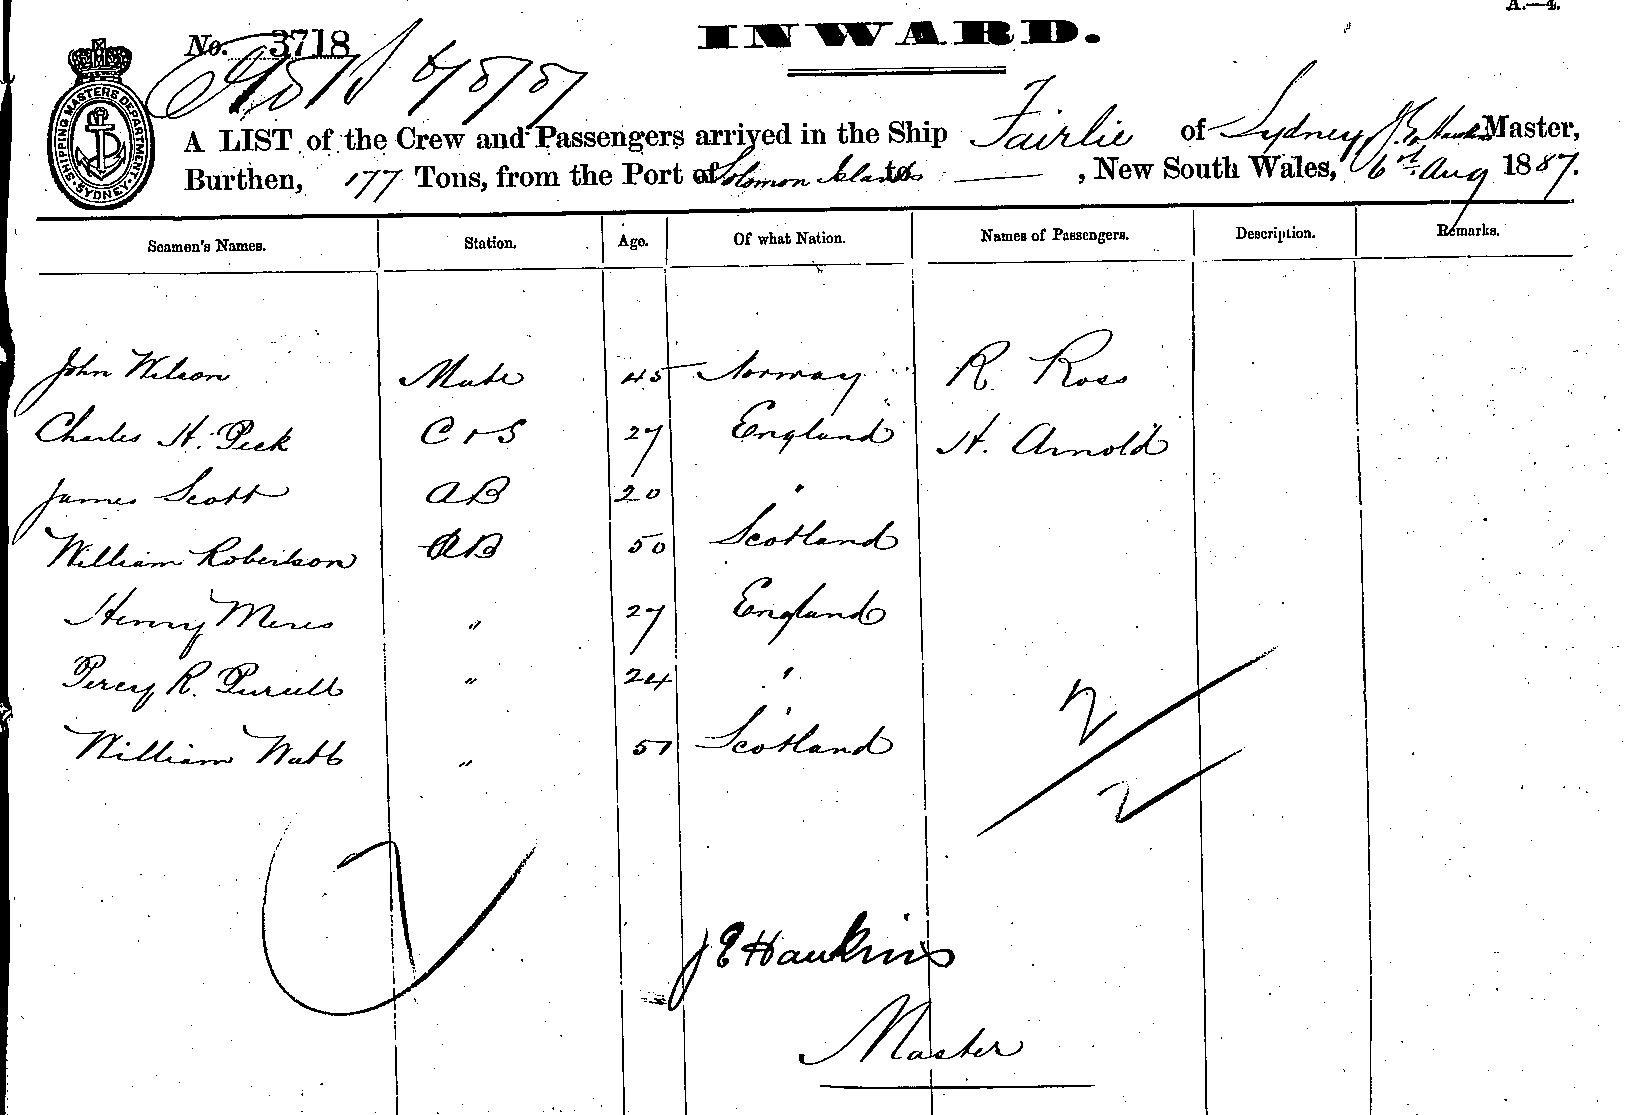 A.—4.
INWARD.
No. 3718
SHIPPING MASTERS DEPARTMENT. SYDNEY.
A LIST of the Crew and Passengers arrived in the Ship Fairlie of Sydney J. E. Hawkins Master,
Burthen, 177 Tons, from the Port of Solomon Islands to , New South Wales, 6th Aug 1887.
Seamen's Names. Station. Age. Of what Nation. Names of Passengers. Description. Remarks.
John Wilson Mate 45 Norway R. Ross
Charles H. Peck C & S 27 England H. Arnold
James Scott AB 20 "
William Robertson AB 50 Scotland
Henry Meres " 27 England
Percy R. Pursell " 24 "
William Watt " 51 Scotland
2
2
7
J E Hawkins
Master